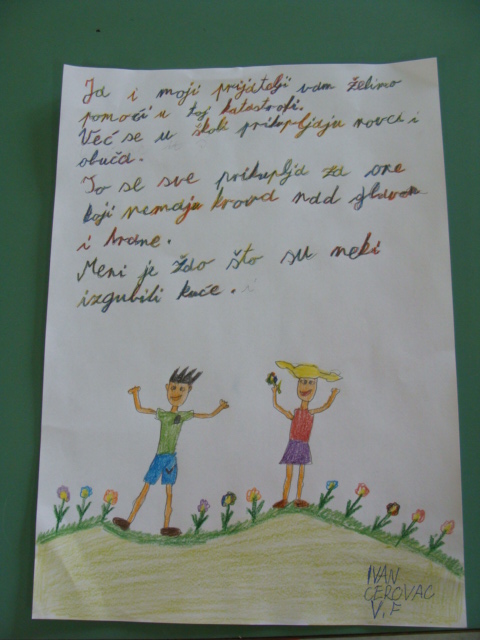 Ja i moji prijatelji vam želimo
pomoći u toj katastrofi.
Već se u školi prikupljaju novci i
obuća.
To se sve prikuplja za one
koji nemaju krova nad glavom
i hrane.
Meni je žao što su neki
izgubili kuće.
IVAN
CEROVAC
V.F